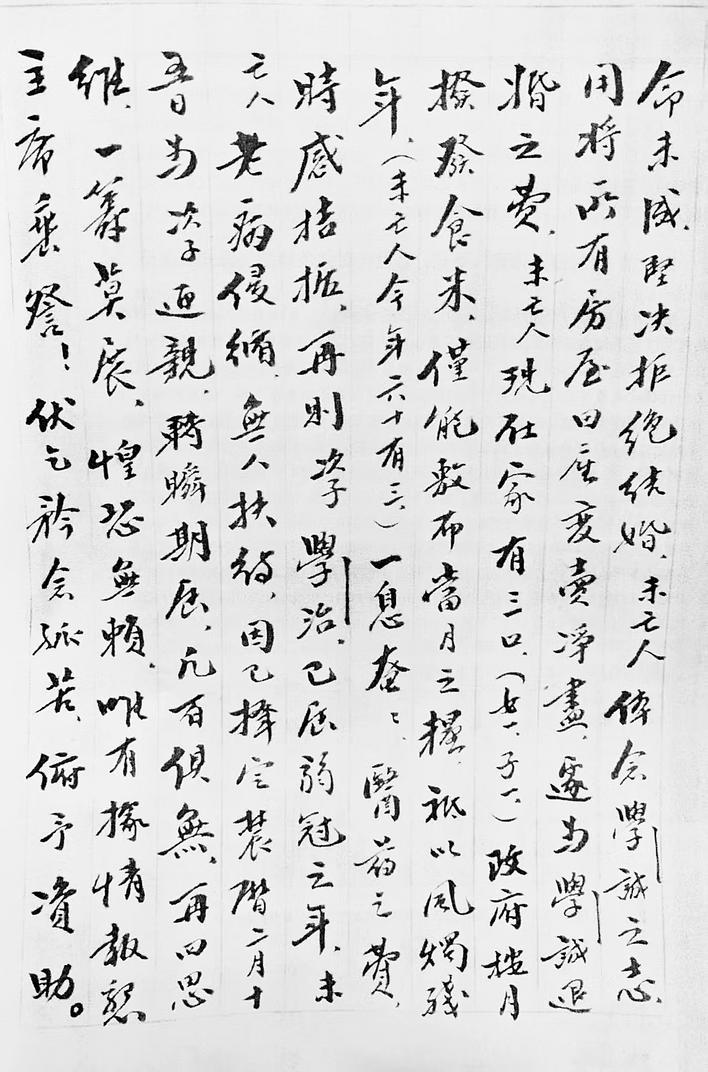 命未成，堅决拒絕結婚，未亡人体念學誠之志，
用將所有房屋田産变賣净盡，遂为學誠退
婚之费，未亡人現在家有三口，（女一、子一、）政府按月
撥發食米，僅能敷布當月之糧，祇以風燭殘
年，（未亡人今年六十有三、）一息奄奄，醫葯之費，
時感拮据，再則次子學治，已屆弱冠之年，未
亡人老病侵循，無人扶待，因已擇定農曆二月十
五日为次子迎親，转瞬期屆，凡百俱無，再四思
維，一籌莫展，惶恐無賴，唯有據情報懇
主席鉴詧！伏乞矜念孤苦，俯予资助。